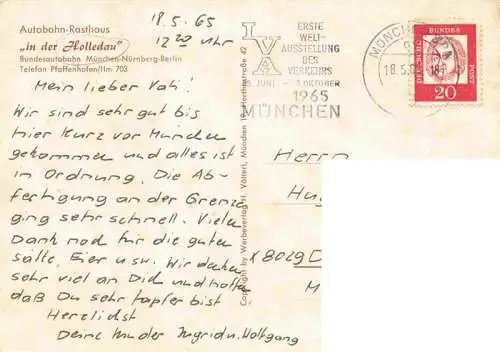 Autobahn-Rasthaus
„in der Holledau"
Bundesautobahn München-Nürnberg-Berlin
Telefon Pfaffenhofen/Ilm 703
18.5.65
12 20 Uhr
Mein lieber Vati!
Wir sind sehr gut bis
hier kurz vor München
gekommen und alles ist
in Ordnung. Die Ab-
fertigung an der Grenze
ging sehr schnell. Vielen
Dank noch für die guten
Säfte, Eier usw. Wir denken
sehr viel an Dich und hoffen
daß Du sehr tapfer bist
Herzlichst
Deine Ingrid u. Wolfgang
Copyright by Werbeverlag H. Vötterl, München 19, 42
IVA
ERSTE
WELT-
AUSSTELLUNG
DES
VERKEHRS
JUNI - 3. OKTOBER
1965
MÜNCHEN
MÜNCHEN
18.5.
DEUTSCHE BUNDESPOST
20
Herrn
X 8029 D